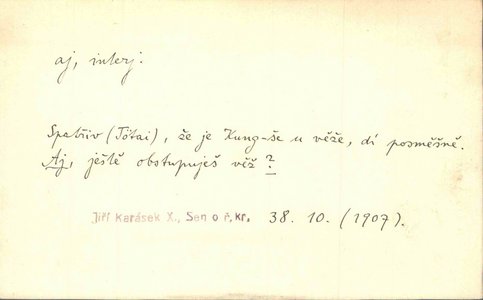 aj, interj.
Spatřiv (Tótai), že je Kung-še u věže, dí posměšně.
Aj, ještě obstupuješ věž?
Jiří Karásek X., Sen o ř. kr. 38. 10. (1907).